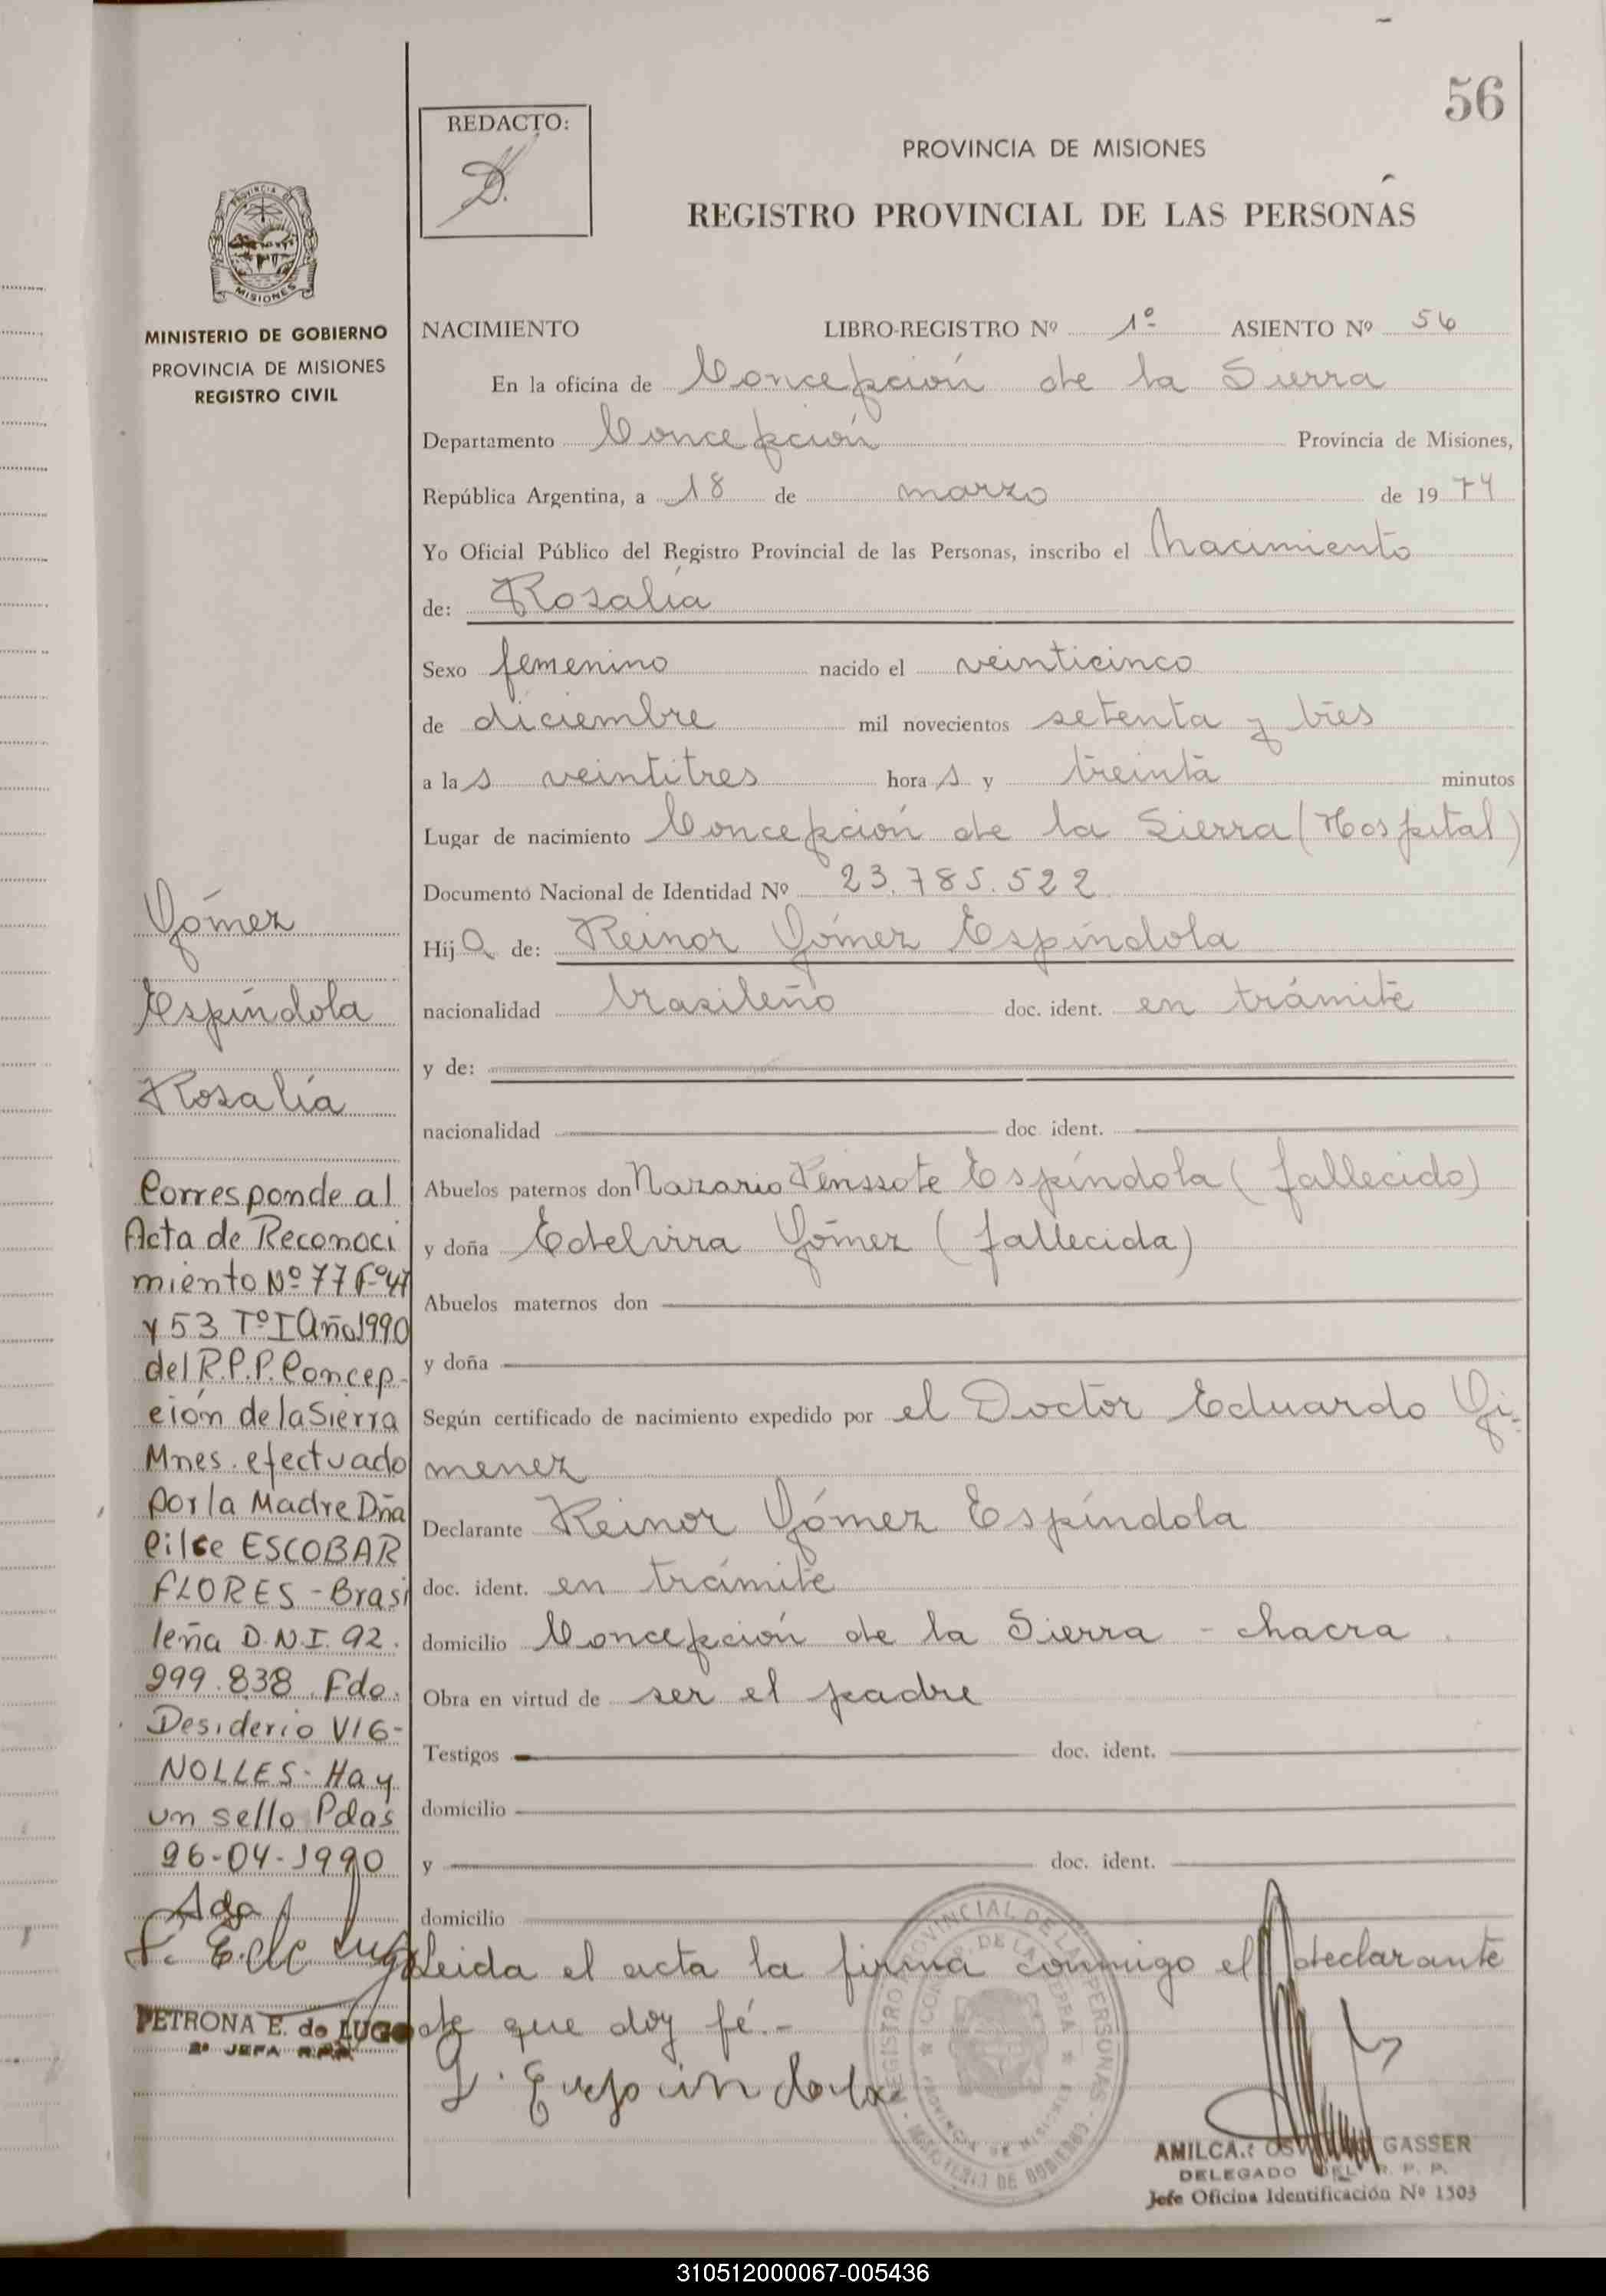 56
REDACTO:
PROVINCIA DE MISIONES
REGISTRO PROVINCIAL DE LAS PERSONAS
PROVINCIA DE
MISIONES
MINISTERIO DE GOBIERNO
PROVINCIA DE MISIONES
REGISTRO CIVIL
NACIMIENTO LIBRO-REGISTRO Nº 1º ASIENTO Nº 56
En la oficina de Concepción de la Sierra
Departamento Concepción Provincia de Misiones,
República Argentina, a 18 de marzo de 1974
Yo Oficial Público del Registro Provincial de las Personas, inscribo el Nacimiento
de: Rosalía
Sexo femenino nacido el veinticinco
de diciembre mil novecientos setenta y tres
a las veintitres horas y treinta minutos
Lugar de nacimiento Concepción de la Sierra (Hospital)
Documento Nacional de Identidad Nº 23.785.522
Hija de: Reinor Gómez Espíndola
nacionalidad brasileño doc. ident. en trámite
y de:
nacionalidad doc. ident.
Abuelos paternos don Nazario Espíndola (fallecido)
y doña Edelvira Gómez (fallecida)
Abuelos maternos don
y doña
Según certificado de nacimiento expedido por el Doctor Eduardo Gi-
menez
Declarante Reinor Gómez Espíndola
doc. ident. en trámite
domicilio Concepción de la Sierra - chacra
Obra en virtud de ser el padre
Testigos doc. ident.
domicilio
y doc. ident.
domicilio
Leida el acta la firma conmigo el declarante
de que doy fé.-
Gómez
Espíndola
Rosalía
Corresponde al
Acta de Reconoci
miento Nº 77 Fº 47
y 53 Tº I Año 1990
del R.P.P. Concep-
ción de la Sierra
Mnes. efectuado
por la Madre Dña
Cilce ESCOBAR
FLORES - Brasi
leña D.N.I. 92.
999.838 Fdo.
Desiderio VIG-
NOLLES - Hay
un sello Pdas
26-04-1990
PETRONA E. de LUGO
2ª JEFA R.P.P.
REGISTRO PROVINCIAL DE LAS PERSONAS
PROVINCIA DE MISIONES
AMILCAR GASSER
DELEGADO DEL R. P. P.
Jefe Oficina Identificación Nº 1503
310512000067-005436